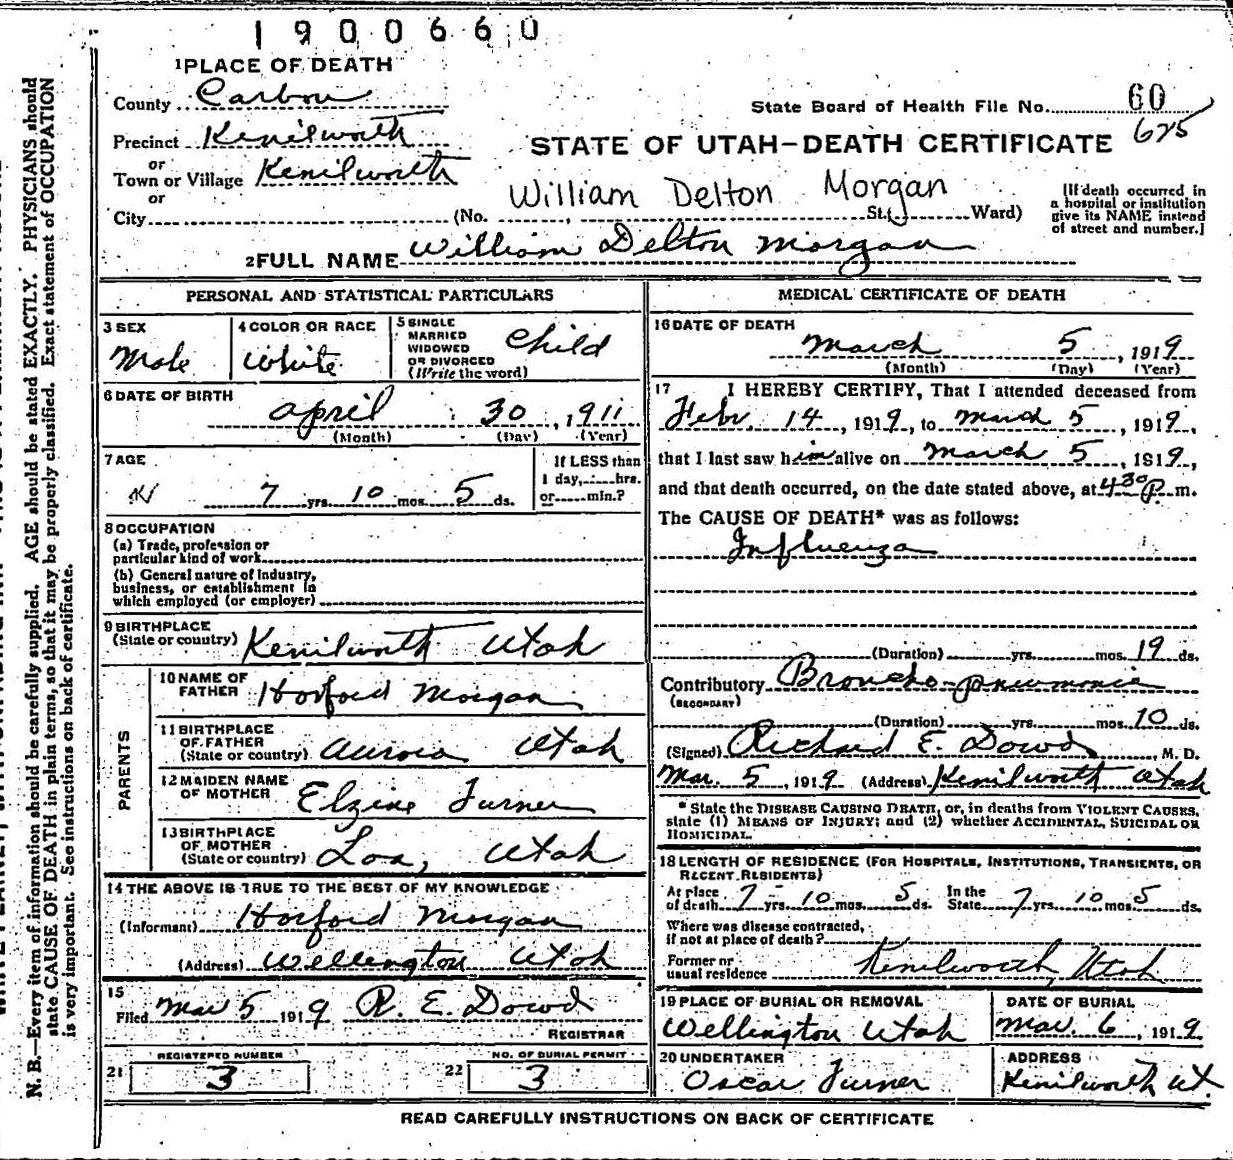 1900660
1 PLACE OF DEATH
County Carbon
State Board of Health File No. 60
625
Precinct Kenilworth
STATE OF UTAH-DEATH CERTIFICATE
or
Town or Village Kenilworth
or
William Delton Morgan
City (No. , St. Ward)
[If death occurred in
a hospital or institution
give its NAME instead
of street and number.]
2 FULL NAME William Delton Morgan
PERSONAL AND STATISTICAL PARTICULARS
3 SEX
Male
4 COLOR OR RACE
White
5 SINGLE
MARRIED
WIDOWED
OR DIVORCED
(Write the word)
Child
6 DATE OF BIRTH
April 30, 1911
(Month) (Day) (Year)
7 AGE
7 yrs. 10 mos. 5 ds.
If LESS than
1 day, hrs.
or min.?
8 OCCUPATION
(a) Trade, profession or
particular kind of work
(b) General nature of industry,
business, or establishment in
which employed (or employer)
9 BIRTHPLACE
(State or country) Kenilworth Utah
PARENTS
10 NAME OF
FATHER Horford Morgan
11 BIRTHPLACE
OF FATHER
(State or country) Aurora Utah
12 MAIDEN NAME
OF MOTHER Elzine Turner
13 BIRTHPLACE
OF MOTHER
(State or country) Loa, Utah
14 THE ABOVE IS TRUE TO THE BEST OF MY KNOWLEDGE
(Informant) Horford Morgan
(Address) Wellington Utah
15
Filed Mar 5 1919 R. E. Dowd
REGISTRAR
REGISTERED NUMBER
21 3
NO. OF BURIAL PERMIT
22 3
MEDICAL CERTIFICATE OF DEATH
16 DATE OF DEATH
March 5, 1919
(Month) (Day) (Year)
17 I HEREBY CERTIFY, That I attended deceased from
Feb. 14, 1919, to March 5, 1919,
that I last saw him alive on March 5, 1919,
and that death occurred, on the date stated above, at 4 30 P. m.
The CAUSE OF DEATH* was as follows:
Influenza
(Duration) yrs. mos. 19 ds.
Contributory Broncho-pneumonia
(SECONDARY)
(Duration) yrs. mos. 10 ds.
(Signed) Richard E. Dowd, M. D.
Mar. 5, 1919 (Address) Kenilworth Utah
* State the DISEASE CAUSING DEATH, or, in deaths from VIOLENT CAUSES,
state (1) MEANS OF INJURY; and (2) whether ACCIDENTAL, SUICIDAL OR
HOMICIDAL.
18 LENGTH OF RESIDENCE (FOR HOSPITALS, INSTITUTIONS, TRANSIENTS, OR
RECENT RESIDENTS)
At place
of death 7 yrs. 10 mos. 5 ds.
In the
State 7 yrs. 10 mos. 5 ds.
Where was disease contracted,
if not at place of death?
Former or
usual residence Kenilworth, Utah
19 PLACE OF BURIAL OR REMOVAL
Wellington Utah
DATE OF BURIAL
Mar. 6, 1919
20 UNDERTAKER
Oscar Turner
ADDRESS
Kenilworth Ut.
READ CAREFULLY INSTRUCTIONS ON BACK OF CERTIFICATE
N. B.—Every item of information should be carefully supplied. AGE should be stated EXACTLY. PHYSICIANS should
state CAUSE OF DEATH in plain terms, so that it may be properly classified. Exact statement of OCCUPATION
is very important. See instructions on back of certificate.